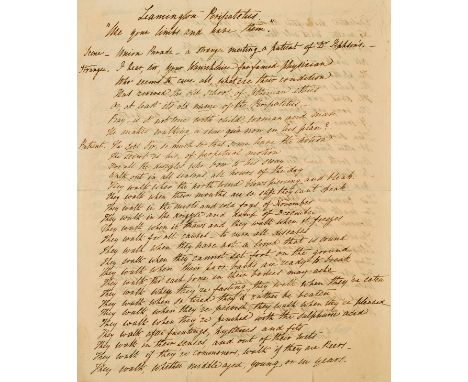 Leamington Peripatetics.
"Use your limbs and have them."
Scene - Union Parade - a stranger meeting a patient of Dr Jephson's -
Stranger. I hear Sir, your Warwickshire far famed physician
Who seems to cure all, whate'er their condition
Has revived the old school of Athenian
Or, at least its old name of the Peripatetics
Pray is it not true with child, woman and man
He makes walking a sine qua non in his plan?
Patient. He does Sir, so much so that some have the notion
He means to put, in perpetual motion
For all the people who bow to his sway
Walk out in all seasons all hours of the day
They walk when the north wind blows piercing and bleak
They walk when their mouths are so stiff they can't speak
They walk in the mists and cold fogs of November
They walk in the drizzle and damp of December
They walk when it thaws and they walk when it freezes
They walk for all causes - to cure all diseases
They walk when they have not a bone that is sound
They walk when they cannot set foot on the ground
They walk when their poor backs are ready to break
They walk tho' each bone in their bodies may ache
They walk when they're fasting, they walk when they've eaten
They walk when so tired they'd rather be beaten
They walk when they're peevish, they walk when they're pleased
They walk when they're pinched with the sulphuric acid
They walk after faintings, hysterics and fits
They walk in their senses and out of their wits
They walk if they're commoners, walk if they are Peers -
They walk whether middle aged, young, or in years.